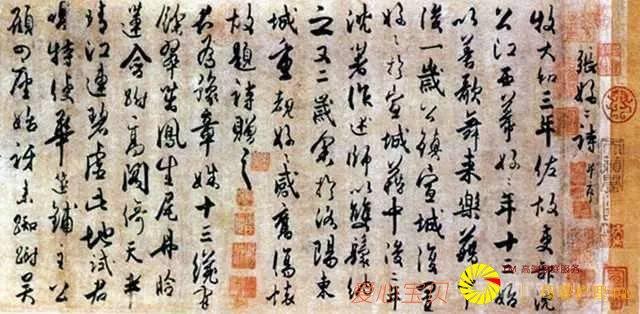 張好〻詩 并序
牧大和三年佐故吏部沈
公江西幕好〻年十三始
以善歌舞来樂籍中
後一歲公鎮宣城復置
好〻於宣城籍中後二年
沈著作述師以雙鬟納
之又二歲余於洛陽東
城重覩好〻感舊傷懷
故題詩贈之
君為豫章姝十三纔有
餘翠茁鳳生尾丹臉
蓮含跗高閣倚天半
晴江連碧虛此地試君
唱特使華筵鋪主公
顧四座始訝来踟躕吴
爱心宝贝
TM 高端家庭服务